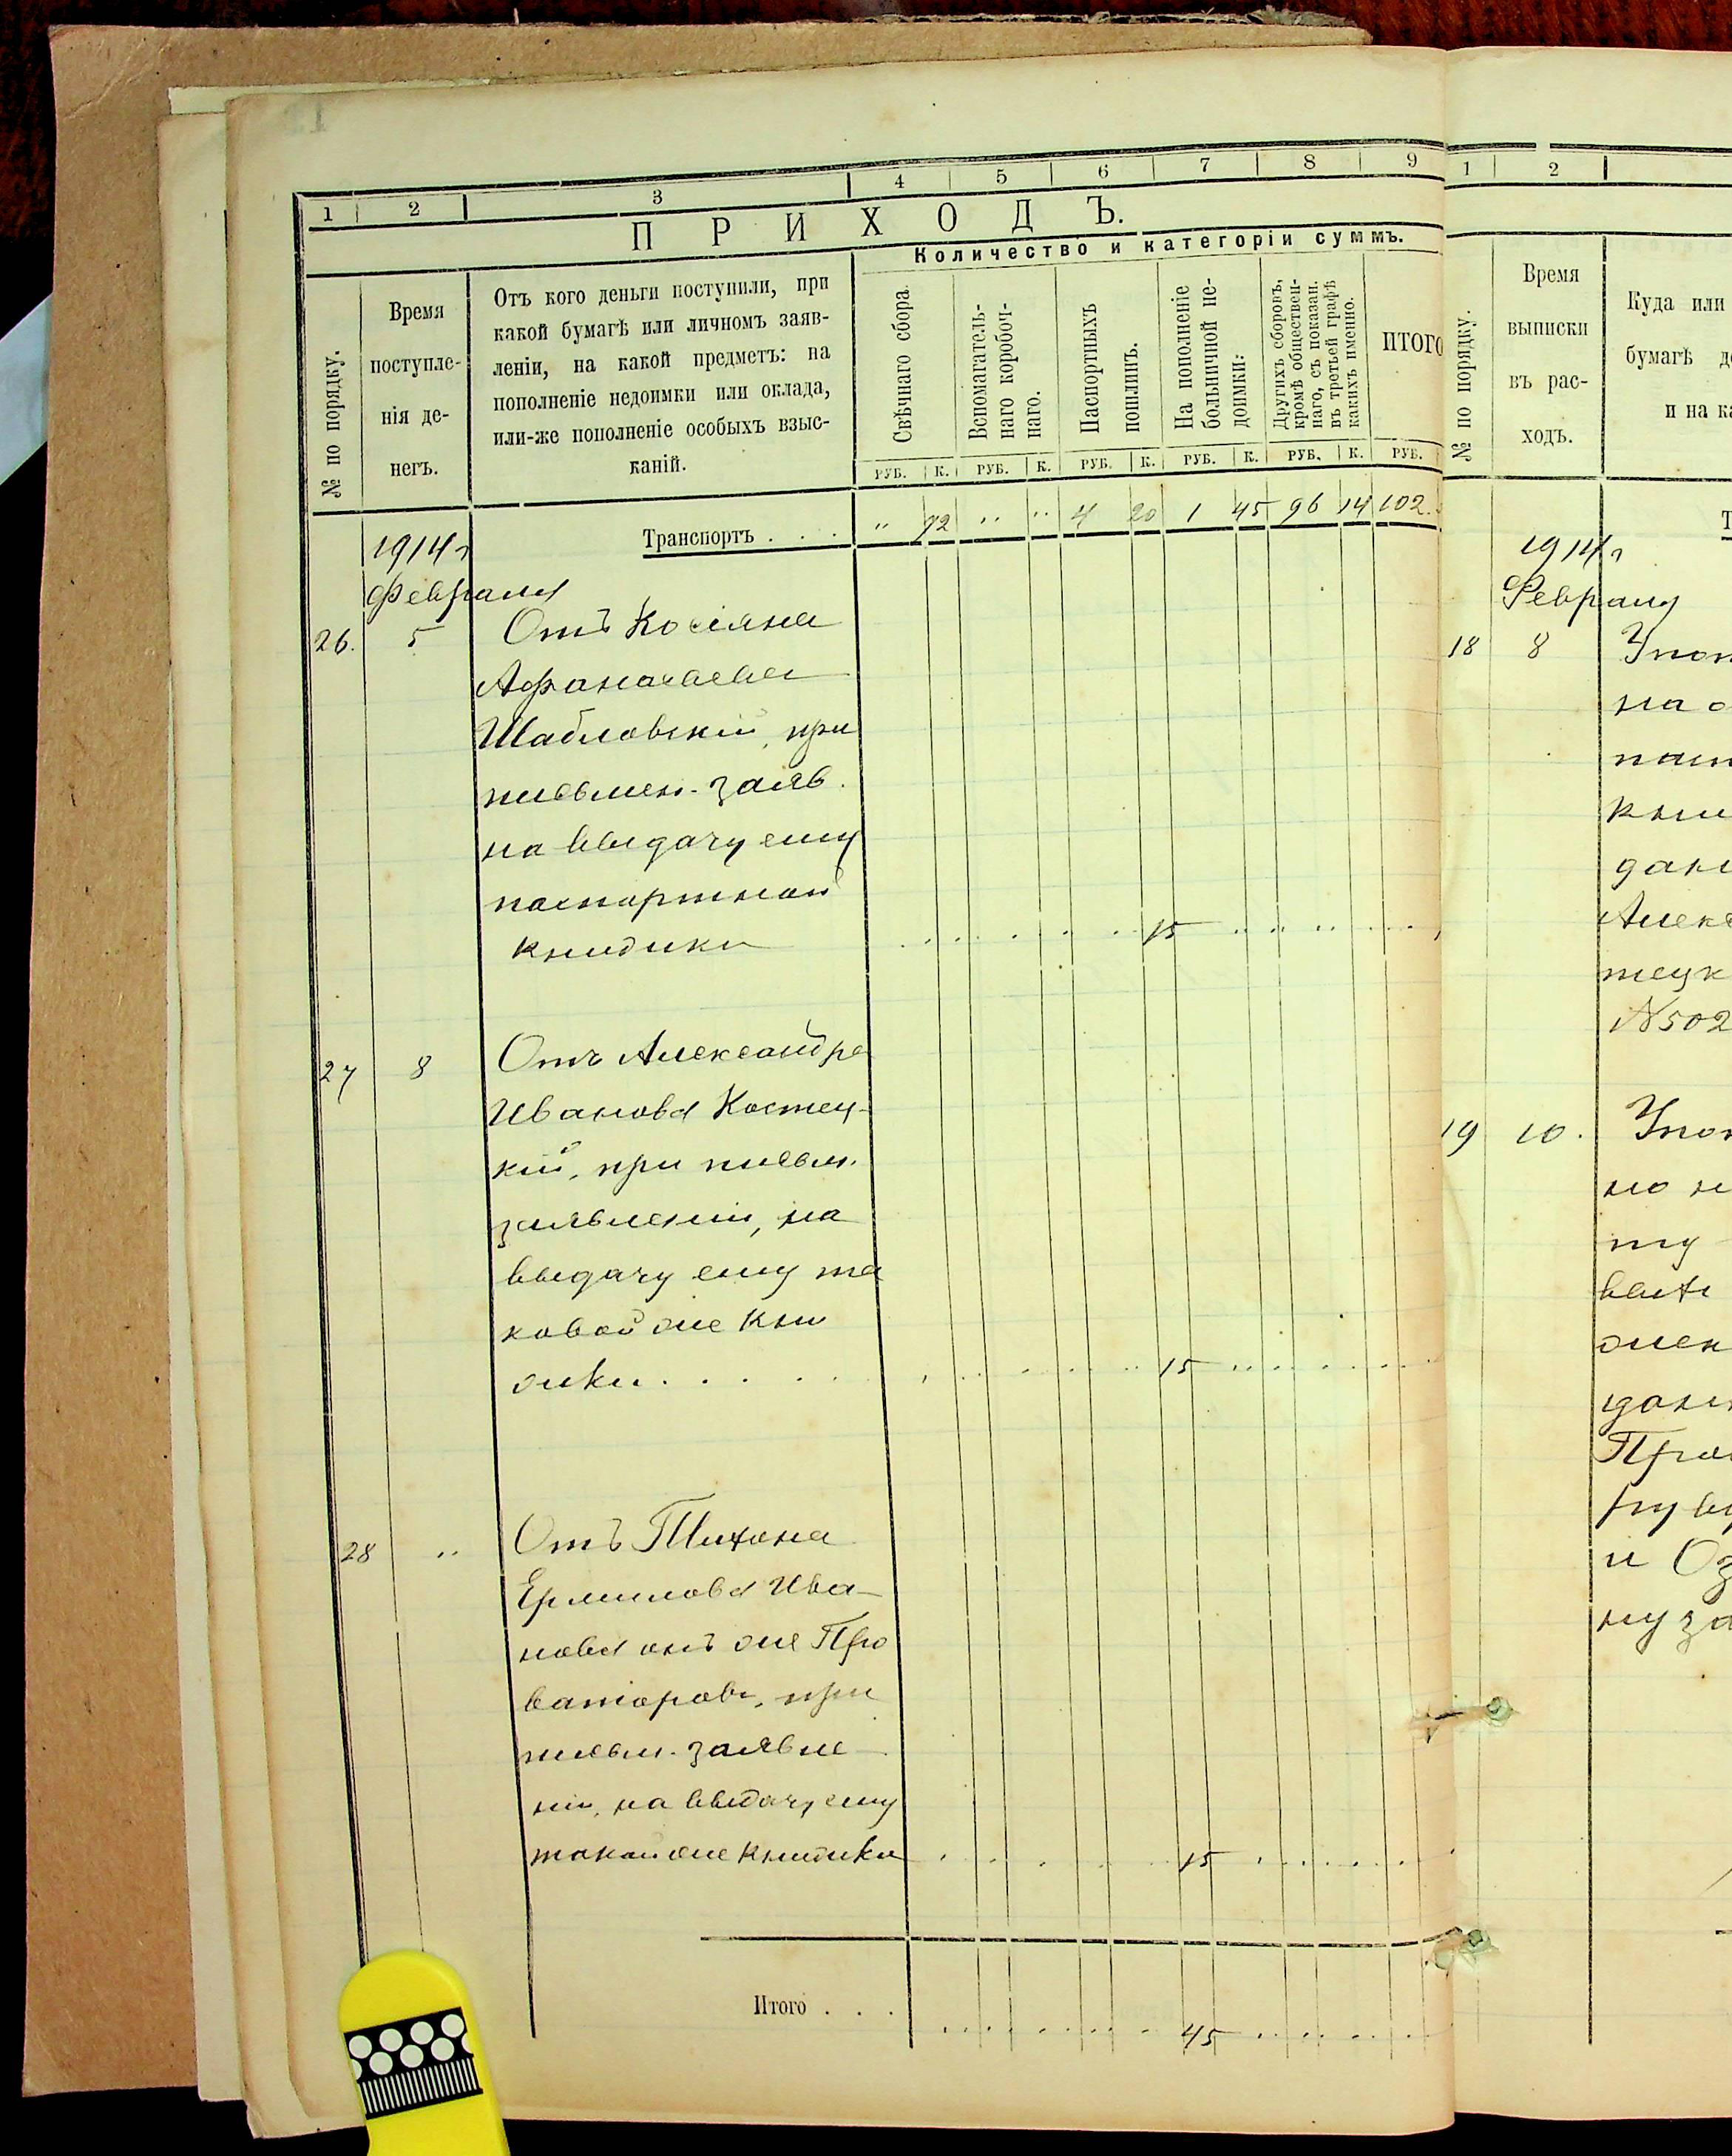 1 2 3 4 5 6 7 8 9
ПРИХОДЪ.
Количество и категоріи суммъ.
№ по порядку.
Время
поступле-
нія де-
негъ.
Отъ кого деньги поступили, при
какой бумагѣ или личномъ заяв-
леніи, на какой предметъ: на
пополненіе недоимки или оклада,
или-же пополненіе особыхъ взыс-
каній.
Свѣчнаго сбора.
Вспомагатель-
наго коробоч-
наго.
Паспортныхъ
пошлинъ.
На пополненіе
больничной не-
доимки:
Другихъ сборовъ,
кромѣ обществен-
наго, съ показан.
въ третьей графѣ
какихъ именно.
ИТОГО
РУБ. К. РУБ. К. РУБ. К. РУБ. К. РУБ. К. РУБ.
Транспортъ . . . „ 72 „ „ 4 20 1 45 96 14 102.
1914 г
Февраля
26. 5 Отъ Косьяна
Афанасьева
Шабловскій, при
письмен. заяв.
на выдачу ему
паспортной
книжки 15
27 8 Отъ Александра
Иванова Костец-
кій, при письм.
заявленіи, на
выдачу ему та
ковой же кни
жки . . . . 15
28 „ Отъ Тихона
Ермилова Ива-
нова онъ же Про
ваторовъ, при
письм. заявле-
ніи, на выдачу ему
такой же книжки 15
Итого . . . 45
1 2
№ по порядку.
Время
выписки
въ рас-
ходъ.
Куда или
бумагѣ
и на
1914 г
Февраля
18 8
на о
дан
Алекс
тецк
№ 502
19 10.
но н
ту
и Оз